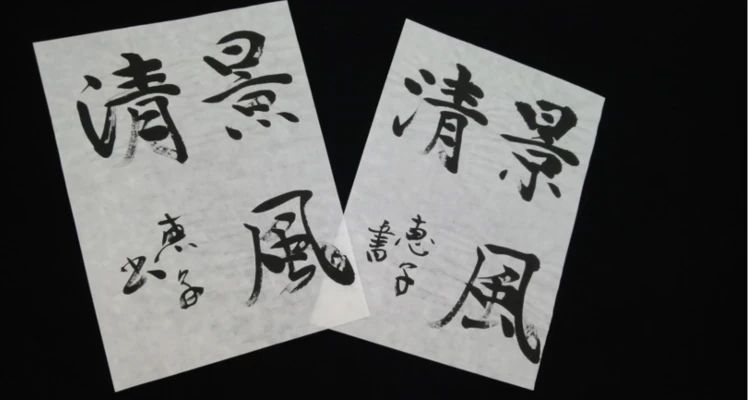 景風
清
恵子
書
景風
清
恵子
書